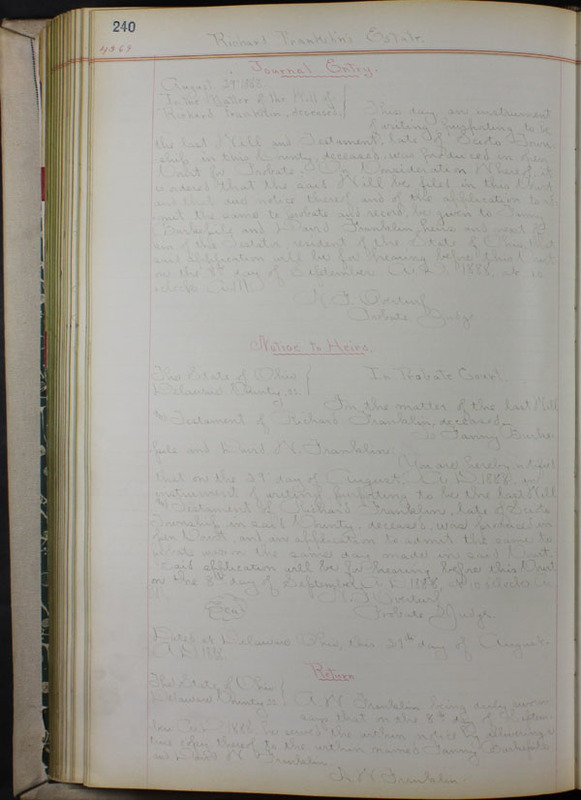 240
4869
Richard Franklin's Estate
Journal Entry.
August 29" 1888
In the Matter of the Will of
Richard Franklin, deceased.
This day an instrument
of writing purporting to be
the last Will and Testament, late of Scioto Town-
ship in this County, deceased, was produced in open
Court for Probate. On Consideration Whereof, it
is ordered that the said Will be filed in this Court
and that due notice thereof and of the application to ad-
mit the same to probate and record, be given to Fanny
and David Franklin heirs and next of
of the Testator, resident of the State of Ohio that
said application will be for hearing before this Court
on the 8th day of September A.D. 1888, at 10
o'clock A.M.
Probate Judge
Notice to Heirs.
The State of Ohio
Delaware County, ss.
In Probate Court
In the matter of the last Will
& Testament of Richard Franklin, deceased
To Fanny
and David W. Franklin.
You are hereby notified
that on the 29 day of August, A.D. 1888, an
instrument of writing purporting to be the last Will
& Testament of Richard Franklin, late of Scioto
Township in said County, deceased, was produced in
open Court, and an application to admit the same to
probate was on the same day made in said Court.
Said application will be for hearing before this Court
on the 8th day of September A.D. 1888, at 10 o'clock A.
M.
Seal
Probate Judge.
Dated at Delaware Ohio, this 29th day of August
A.D. 1888
Return
The State of Ohio
Delaware County ss
A W Franklin being duly sworn
says that on the 8th day of Septem-
ber A.D. 1888 he served the within notice by delivering a
true copy thereof to the within named Fanny
and David W. Franklin.
A. W. Franklin.